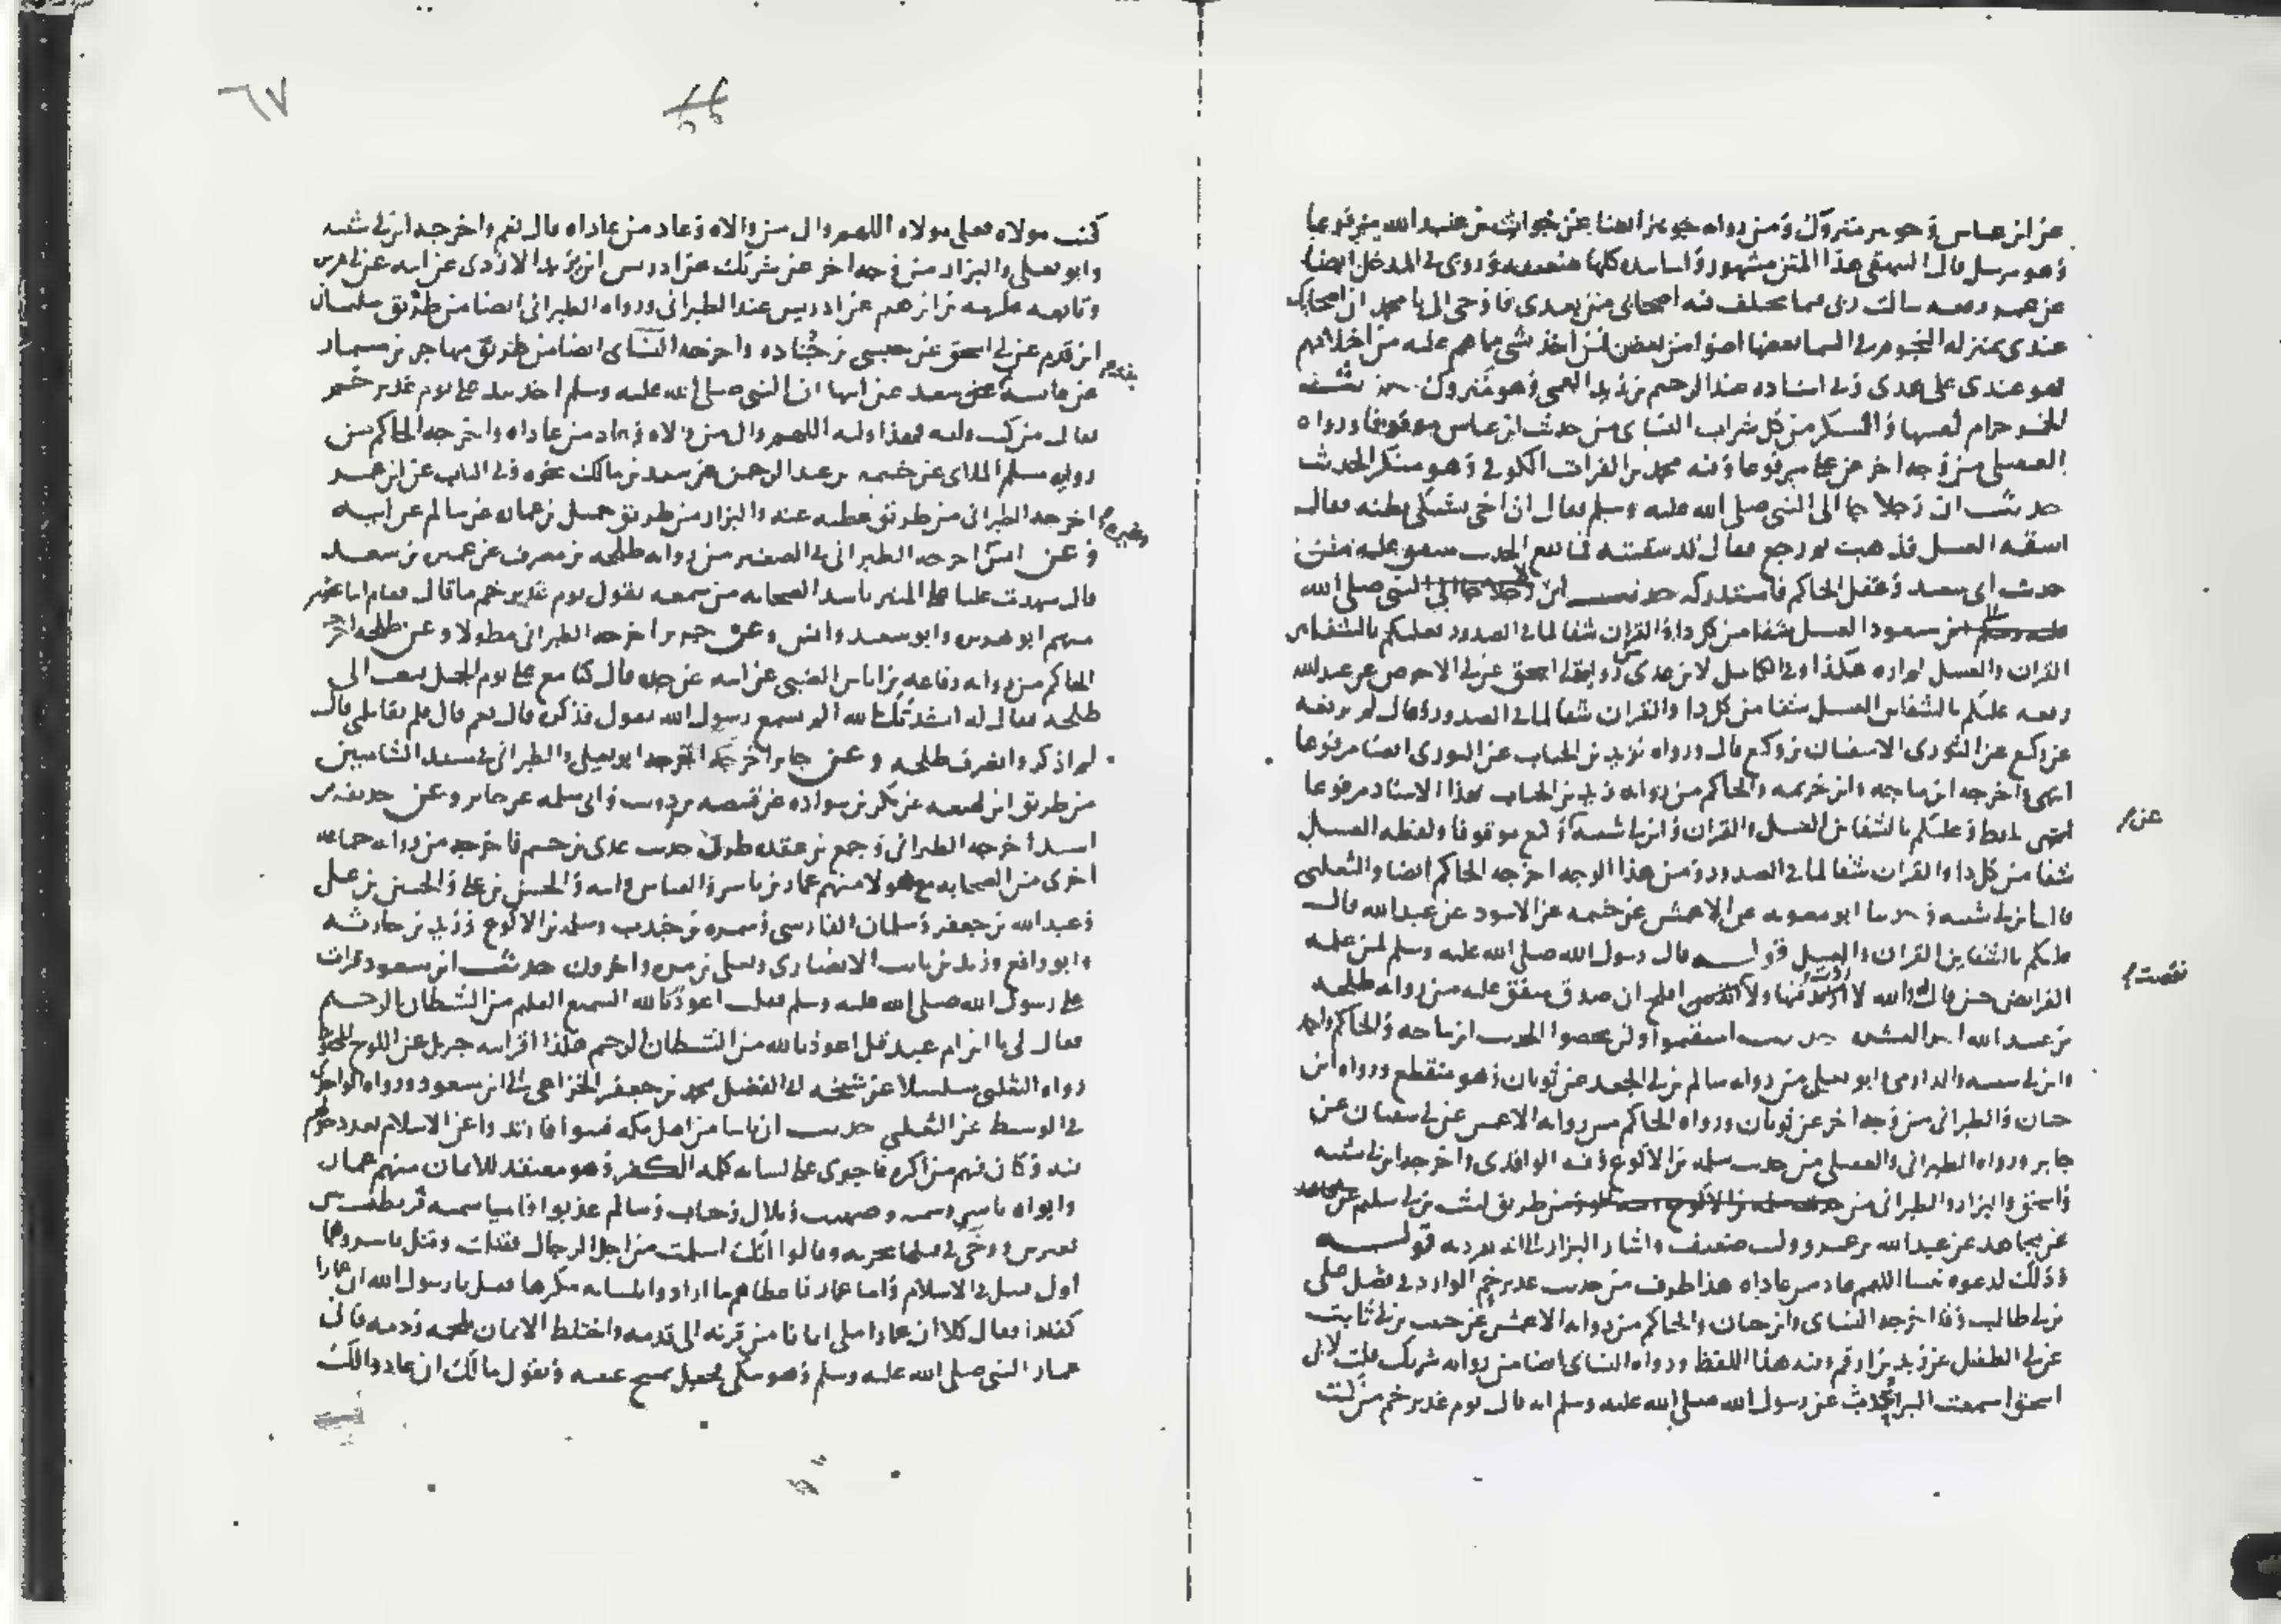 عن ابن عباس وجويبر متروك ومن رواية جويبر ايضا عن جواب بن عبيد الله مرفوعا
وهو مرسل قال البيهقي هذا المتن مشهور واسانيده كلها ضعيفه وروى في المدخل ايضا
عن عمر رفعه سالت ربي فيما يختلف فيه اصحابي من بعدي فاوحى الي يا محمد ان اصحابك
عندي بمنزلة النجوم في السما بعضها اضوا من بعض فمن اخذ بشي مما هم عليه من اختلافهم
فهو عندي على هدى وفي اسناده عبد الرحيم بن زيد العمي وهو متروك حديث
الخمر حرام لعينها والسكر من كل شراب النساي من حديث ابن عباس موقوفا ورواه
العقيلي من وجه اخر عن علي مرفوعا وفيه محمد بن الفرات الكوفي وهو منكر الحديث
حديث ان رجلا جا الى النبي صلى الله عليه وسلم فقال ان اخي يشتكي بطنه فقال
اسقه العسل فذهب ثم رجع فقال قد سقيته فما نفع الحديث متفق عليه من
حديث ابي سعيد وغفل الحاكم فاستدركه حديث ان رجلا جا الى النبي صلى الله
عليه وسلم ابن مسعود العسل شفا من كل دا والقران شفا لما في الصدور فعليكم بالشفاين
القران والعسل لم اره هكذا وفي الكامل لابن عدي من رواية ابي اسحق عن ابي الاحوص عن عبد الله
رفعه عليكم بالشفاين العسل شفا من كل دا والقران شفا لما في الصدور وقال لم يرفعه
عن وكيع عن الثوري الا سفيان بن وكيع قال ورواه زيد بن الحباب عن الثوري ايضا مرفوعا
انتهى واخرجه ابن ماجه وابن خزيمة والحاكم من رواية زيد بن الحباب بهذا الاسناد مرفوعا
عن
انتهى بلفظ وعليكم بالشفاين العسل والقران وابن ابي شيبة وكيع موقوفا ولفظه العسل
شفا من كل دا والقران شفا لما في الصدور ومن هذا الوجه اخرجه الحاكم ايضا والثعلبي
قال ابن ابي شيبة وحدثنا ابو معوية عن الاعمش عن خيثمه عن الاسود عن عبد الله قال
عليكم بالشفاين القران والعسل قوله قال رسول الله صلى الله عليه وسلم لمن علمه
نقصت
الفرايض حين قال والله لا ازيد فيها ولا انقص افلح ان صدق متفق عليه من رواية طلحة
بن عبيد الله احد العشرة حديث استقيموا ولن تحصوا الحديث ابن ماجه والحاكم واحمد
وابن ابي شيبة والدارمي وابو يعلى من رواية سالم بن ابي الجعد عن ثوبان وهو منقطع ورواه ابن
حبان والطبراني من وجه اخر عن ثوبان ورواه الحاكم من رواية الاعمش عن ابي سفيان عن
جابر ورواه الطبراني والعقيلي من حديث سلمة بن الاكوع وفيه الواقدي واخرجه ابن ابي شيبة
واسحق والبزار والطبراني من حديث سلمة بن الاكوع ومن طريق ليث بن ابي سليم عن مجاهد
عن مجاهد عن عبد الله بن عمرو وليث ضعيف واشار البزار الى انه تفرد به قوله
وذلك لدعوة نبينا اللهم عاد من عاداه هذا طرف من حديث غدير خم الوارد في فضل علي
بن ابي طالب وقد اخرجه النساي وابن حبان والحاكم من رواية الاعمش عن حبيب بن ابي ثابت
عن ابي الطفيل عن زيد بن ارقم وفيه هذا اللفظ ورواه النساي ايضا من رواية شريك قلت لابي
اسحق اسمعت البرا يحدث عن رسول الله صلى الله عليه وسلم انه قال يوم غدير خم من كنت
٦٧
٦٦
كنت مولاه فعلي مولاه اللهم وال من والاه وعاد من عاداه قال نعم واخرجه ابن ابي شيبه
وابو يعلى والبزار من وجه اخر عن شريك عن ادريس ابن يزيد الاودي عن ابيه عن ابي هريرة
وتابعه عكرمه بن ابرهيم عن ادريس عند الطبراني ورواه الطبراني ايضا من طريق سليمان
ابن قرم عن ابي اسحق عن حبشي بن جنادة واخرجه النساي ايضا من طريق مهاجر بن مسمار
عن عايشة بنت سعد عن ابيها ان النبي صلى الله عليه وسلم اخذ بيد علي يوم غدير خم
فقال من كنت وليه فهذا وليه اللهم وال من والاه وعاد من عاداه واخرجه الحاكم من
رواية مسلم الملاي عن خيثمه بن عبد الرحمن عن سعد بن مالك نحوه وفي الباب عن ابن عمر
وغيره
اخرجه الطبراني من طريق عطيه عنه والبزار من طريق جميل بن عمارة عن سالم عن ابيه
وعن انس اخرجه الطبراني في الصغير من رواية طلحه بن مصرف عن عميرة بن سعد
قال شهدت عليا على المنبر ناشد الصحابه من سمعه يقول يوم غدير خم ما قال فقام اثنا عشر
منهم ابو هريرة وابو سعيد وانس وعن جرير اخرجه الطبراني مطولا وعن طلحه اخرجه
الحاكم من رواية رفاعه بن اياس الضبي عن ابيه عن جده قال كنا مع علي يوم الجمل فبعث الى
طلحه فقال له انشدتك الله الم تسمع رسول الله يقول فذكره قال نعم قال فلم تقاتلني قال
لم اذكر وانصرف طلحه وعن جابر اخرجه ابو يعلى والطبراني في مسند الشاميين
من طريق ابن لهيعه عن بكر بن سواده عن قبيصه بن ذويب وابي سلمه عن جابر وعن حذيفه بن
اسيد اخرجه الطبراني وجمع بن عقده طرق حديث غدير خم فاخرجه من رواية جماعه
اخرى من الصحابه مع هولا منهم عمار بن ياسر والعباس وابنه والحسن بن علي والحسين بن علي
وعبد الله بن جعفر وسلمان الفارسي وسمره بن جندب وسلمه بن الاكوع وزيد بن حارثه
وابو رافع وزيد بن ثابت الانصاري ويعلى بن مره واخرون حديث ابن مسعود قرات
على رسول الله صلى الله عليه وسلم فقلت اعوذ بالله السميع العليم من الشيطان الرجيم
فقال لي يا ابن ام عبد قل اعوذ بالله من الشيطان الرجيم هكذا اقرانيه جبريل عن اللوح المحفوظ
رواه الثعلبي مسلسلا عن شيخه ابي الفضل محمد بن جعفر الخزاعي الى ابن مسعود ورواه الواحدي
في الوسيط عن الثعلبي حديث ان ناسا من اهل مكه فتنوا فارتدوا عن الاسلام بعد دخولهم
فيه وكان فيهم من اكره فاجرى على لسانه كلمه الكفر وهو معتقد للايمان منهم عمار
وابواه ياسر وسميه وصهيب وبلال وخباب وسالم عذبوا فاما سميه فربطت بين
بعيرين ووجئ في قبلها بحربه وقالوا انك اسلمت من اجل الرجال فقتلت وقتل ياسر وهما
اول قتيل في الاسلام واما عمار فاعطاهم ما ارادوا بلسانه مكرها فقيل يا رسول الله ان عمارا
كفر فقال كلا ان عمارا ملي ايمانا من قرنه الى قدمه واختلط الايمان بلحمه ودمه فاتى
عمار النبي صلى الله عليه وسلم وهو يبكي فجعل يمسح عينيه ويقول مالك ان عادوا لك